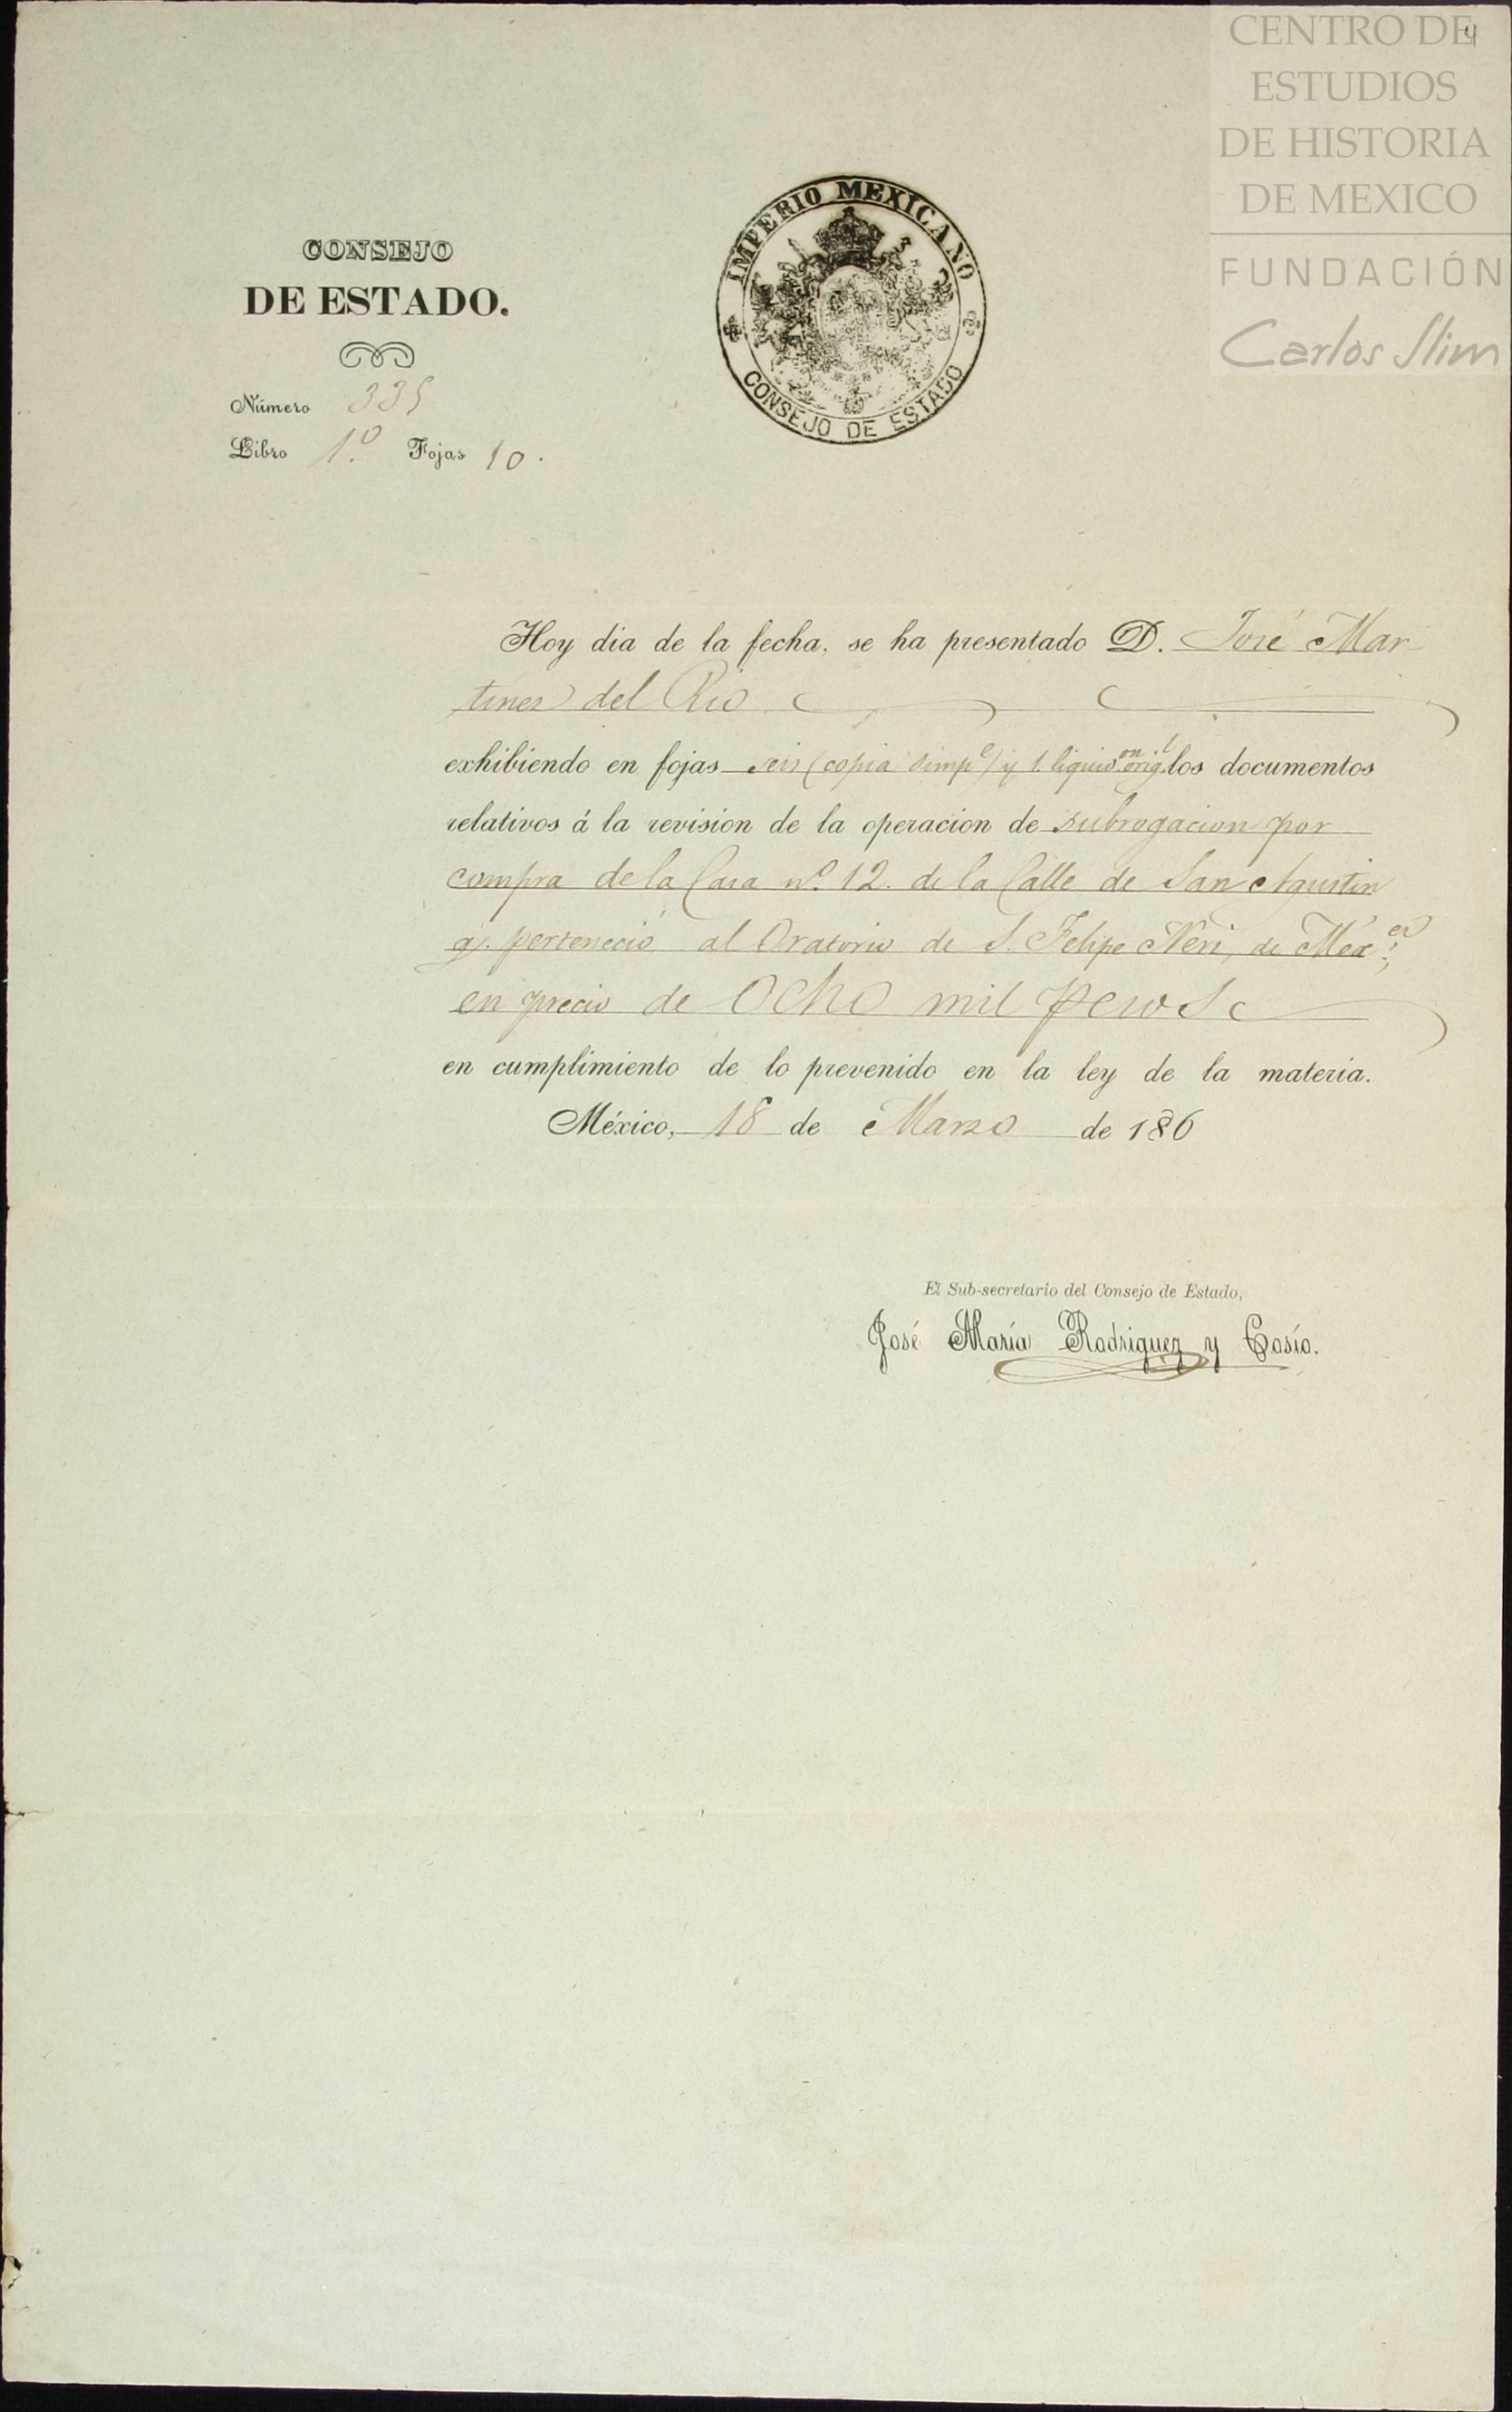 CENTRO DE
ESTUDIOS
DE HISTORIA
DE MEXICO
FUNDACIÓN
Carlos Slim
4
IMPERIO MEXICANO
CONSEJO DE ESTADO
CONSEJO
DE ESTADO.
Número 335
Libro 1º Fojas 10.
Hoy dia de la fecha, se ha presentado D. José Mar
tinez del Rio
exhibiendo en fojas seis (copia simpe) y 1. liquidon origl los documentos
relativos á la revision de la operacion de subrogacion por
compra de la Casa nº 12. de la Calle de San Agustin
q. perteneció al Oratorio de S. Felipe Neri, de Mex
en precio de Ocho mil pesos
en cumplimiento de lo prevenido en la ley de la materia.
México, 18 de Marzo de 186
El Sub-secretario del Consejo de Estado,
José María Rodriguez y Cosío.